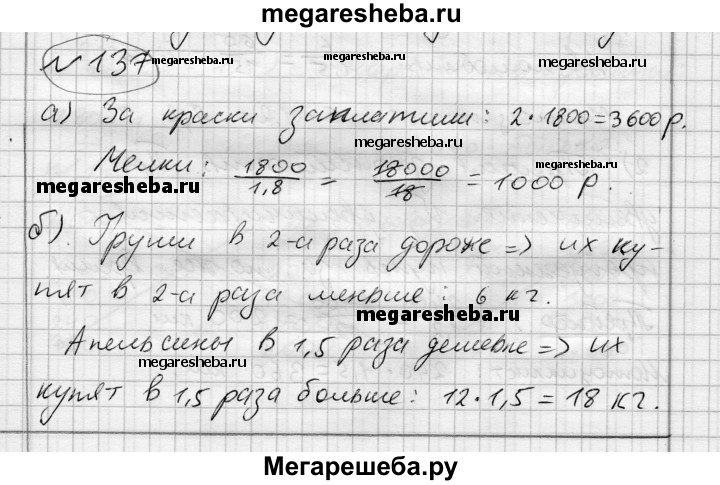 megaresheba.ru
№ 137 megaresheba.ru megaresheba.ru
megaresheba.ru
а) За краски заплатили: 2·1800=3600 р.
megaresheba.ru
Мелки: 1800/1,8 = 18000/18 = 1000 р.
megaresheba.ru megaresheba.ru
б). Груши в 2-а раза дороже => их ку-
megaresheba.ru
пят в 2-а раза меньше: 6 кг.
megaresheba.ru
Апельсины в 1,5 раза дешевле => их
megaresheba.ru megaresheba.ru
купят в 1,5 раза больше: 12·1,5=18 кг.
megaresheba.ru
Мегарешеба.ру